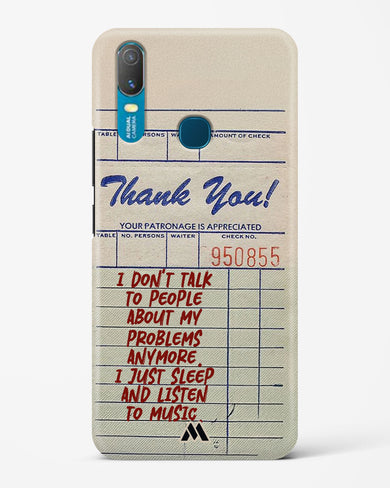 AI DUAL
CAMERA
TABLE PERSONS WA AMOUNT OF CHECK
Thank You!
YOUR PATRONAGE IS APPRECIATED
TABLE NO. PERSONS WAITER CHECK NO.
950855
I DON'T TALK
TO PEOPLE
ABOUT MY
PROBLEMS
ANYMORE.
I JUST SLEEP
AND LISTEN
TO MUSIC